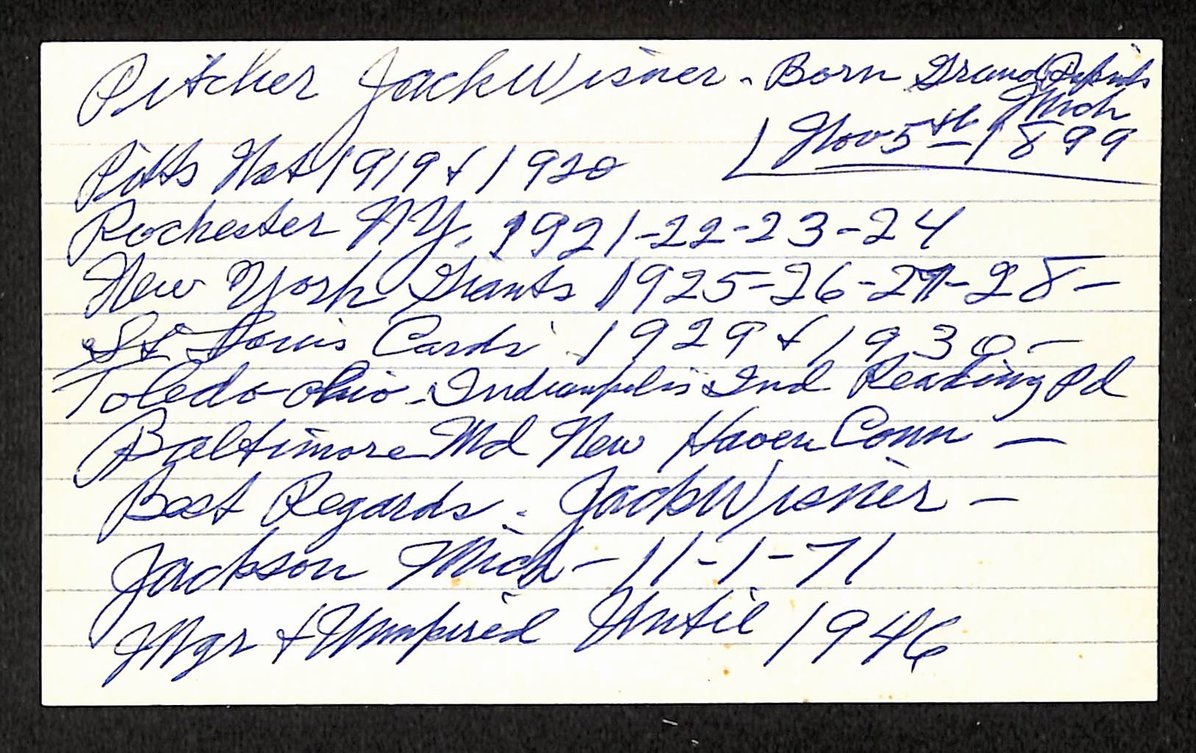 Pitcher Jack Wisner - Born Grand Rapids
Mich
Nov 5th 1899
Pitts Nat 1919 & 1920
Rochester NY. 1921-22-23-24
New York Giants 1925-26-27-28-
St Louis Cards 1929 & 1930-
Toledo-Ohio-Indianapolis Ind Reading Pa
Baltimore Md New Haven Conn -
Best Regards - Jack Wisner -
Jackson Mich - 11-1-71
Mgr & Umpired Until 1946